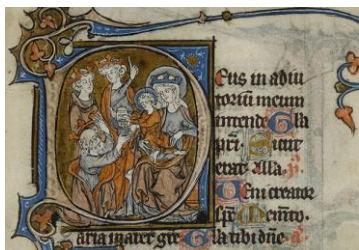 Deus in adiu
toriū meum
intende Gla
pri. Sicut
erat Alla.
Veni creator
spc Memto.
aria mater gre Gla tibi dn̄e